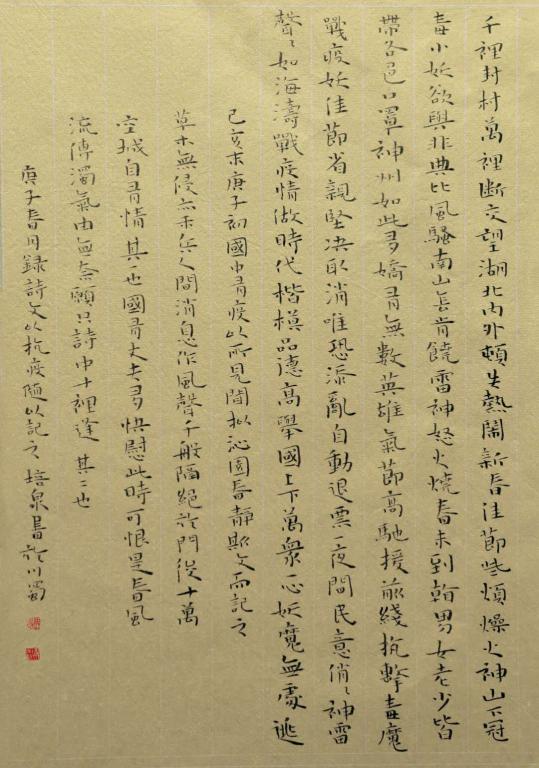 千裡封村萬裡斷交望湖北內外頓失熱鬧新春佳節些煩燥火神山下冠
毒小妖欲與非典比風騷南山豈肯饒雷神怒火燒春未到翰男女老少皆
帶各色口罩神州如此多嬌有無數英雄氣節高馳援前綫抗擊毒魔
戰疫妖佳節省親堅决取消唯恐添亂自動退票一夜間民意俏〻神雷
聲〻如海濤戰疫情做時代楷模品德高舉國上下萬衆一心妖魔無處逃
己亥末庚子初國中有疫以所見聞擬沁園春靜斯文而記之
草木無侵亦禾兵人間消息作風聲千般隔絕於門後十萬
空城自有情 其一也 國有丈夫多快慰此時可恨是春風
流傳濁氣由無奈願只詩中十裡逢 其二也
庚子春月録詩文以抗疫随以記之 培泉書於川蜀